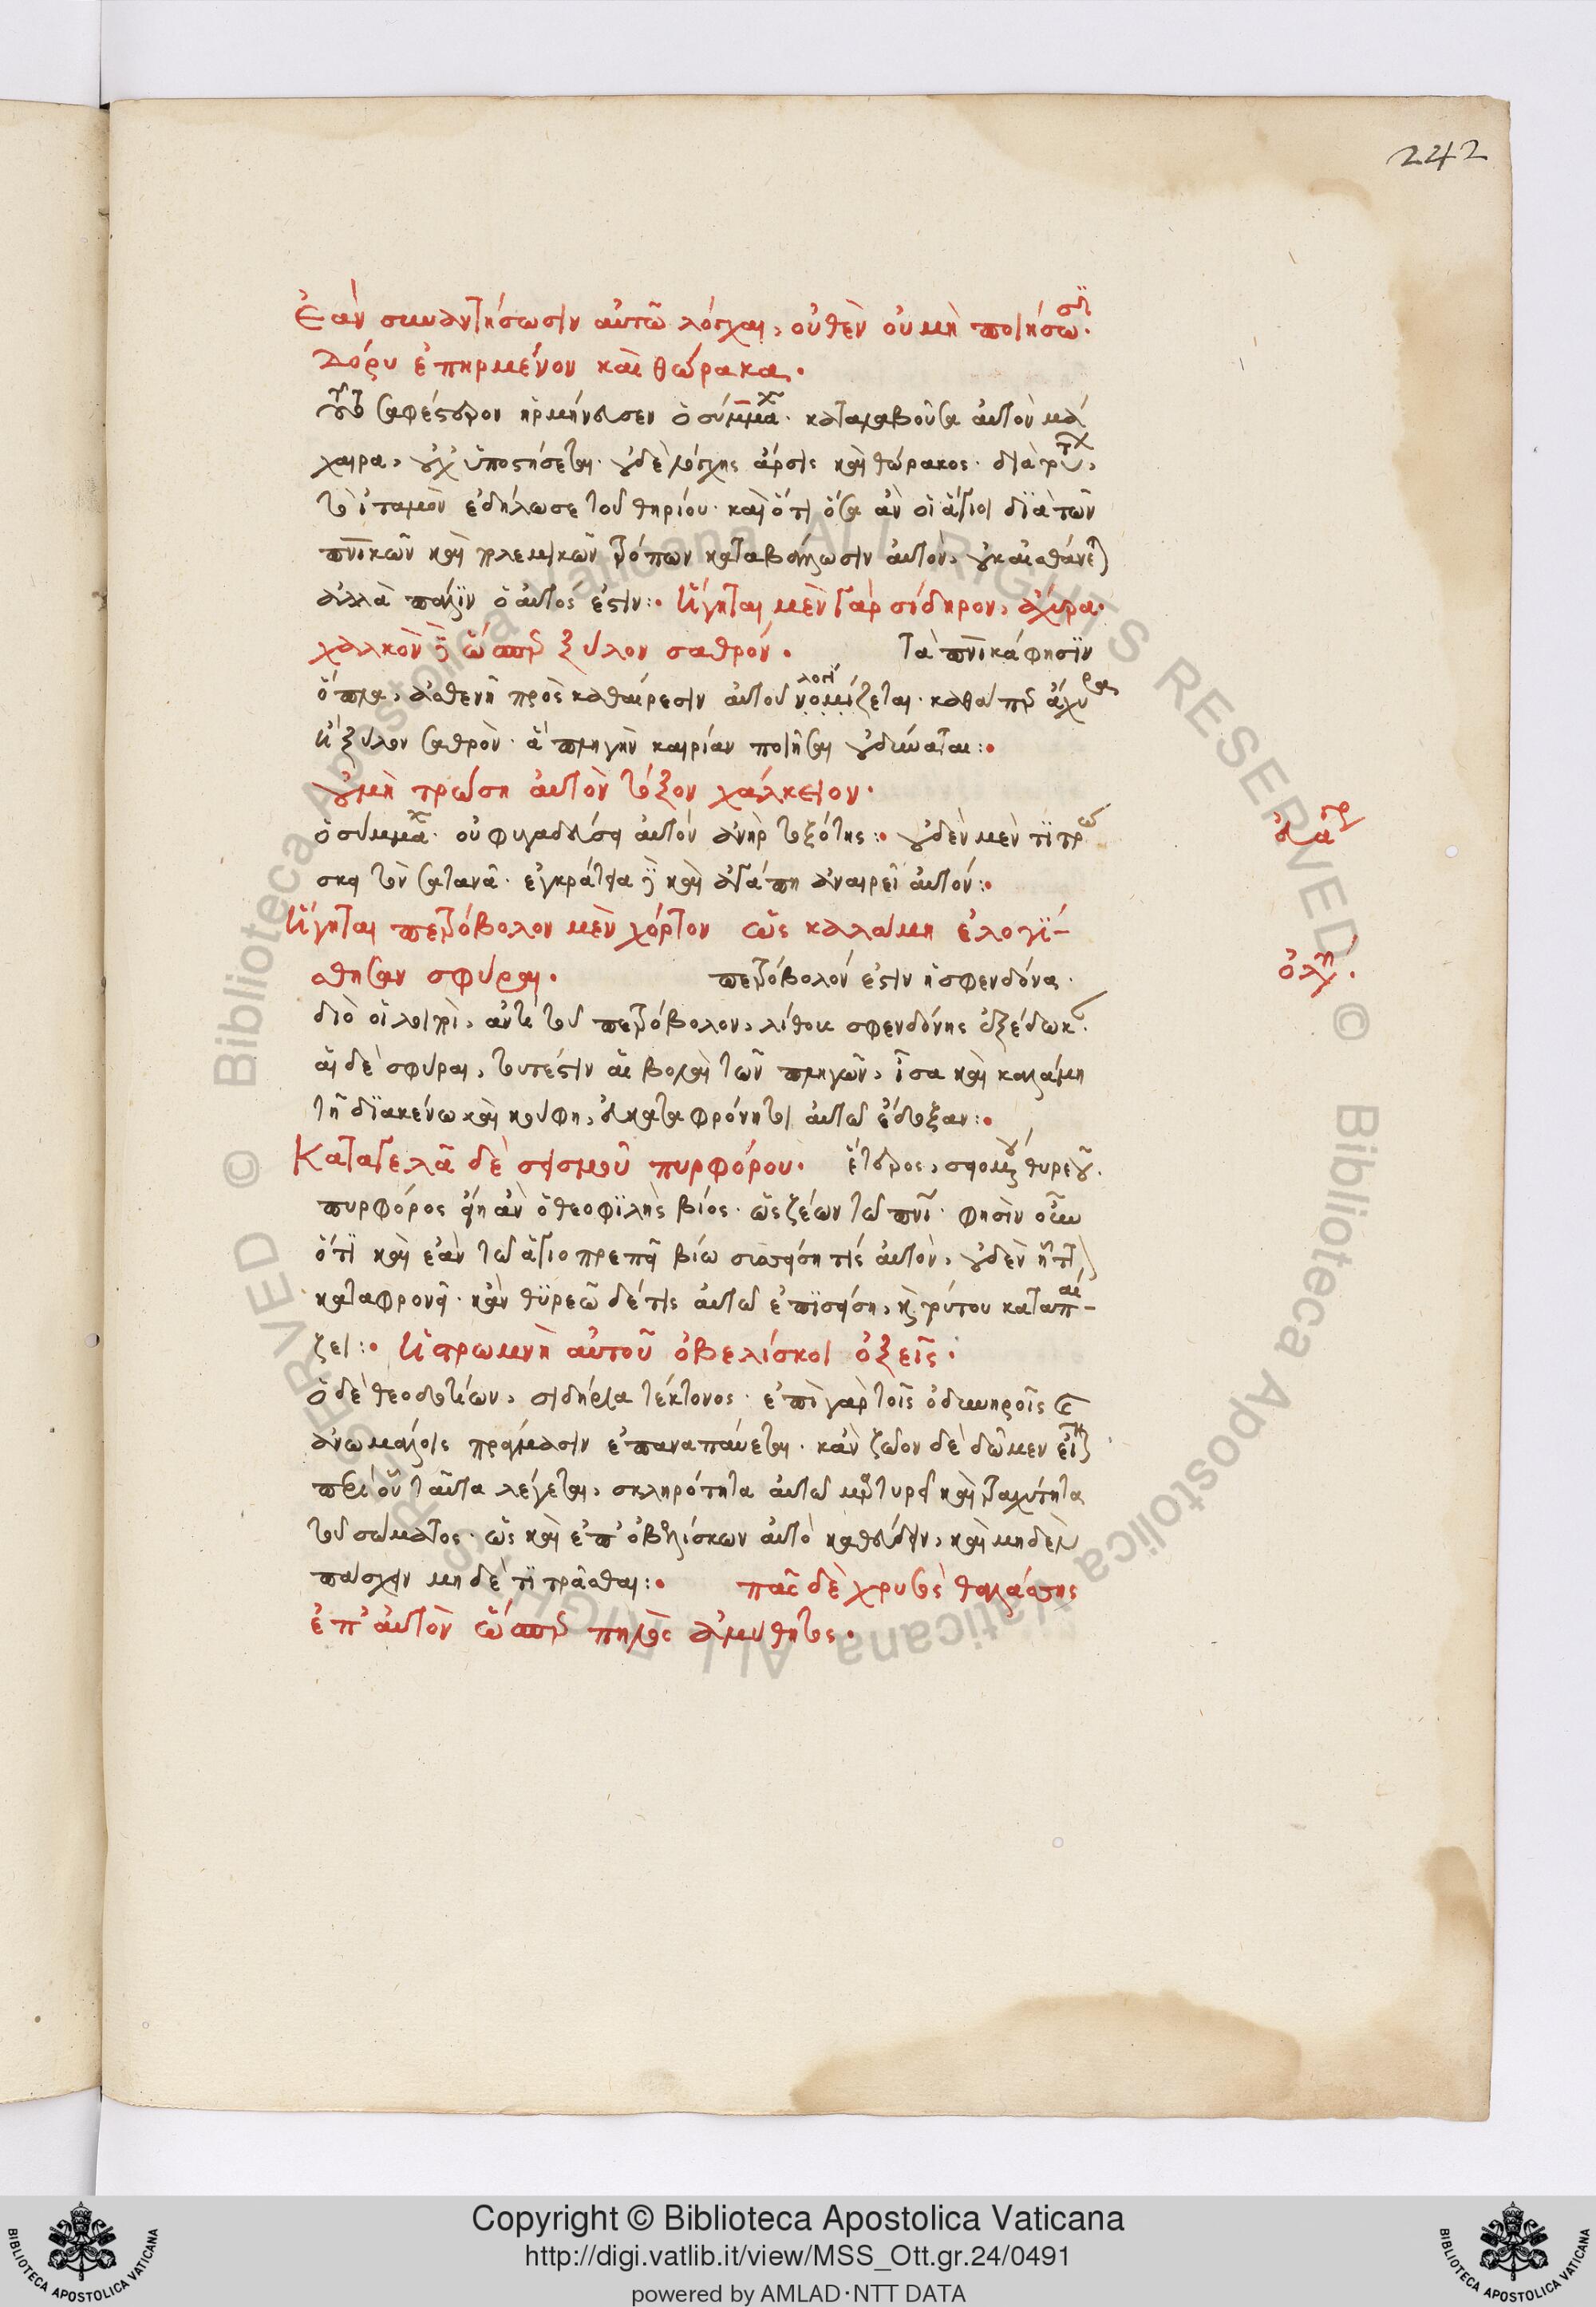 242
Ἐὰν συναντήσωσιν αὐτῶ λόγχαι, οὐθὲν οὐ μὴ ποιήσωσιν.
Δόρυ ἐπηρμένον καὶ θώρακα.
τοῦτο σαφέστερον ἡρμήνευσεν ὁ σύμμαχ. καταλαβοῦσα αὐτὸν μά
χαιρα, οὐχ ὑποστήσεται. οὐδὲ λόγχης ἄρσις καὶ θώρακος. διὰ τούτων,
τὸ ἰταμὸν ἐδήλωσε τοῦ θηρίου. καὶ ὅτι ὅσα ἂν οἱ ἅγιοι διὰ τῶν
πνικῶν καὶ πολεμικῶν τρόπων καταβάλωσιν αὐτὸν, οὐκ
ἀλλὰ πάλιν ὁ αὐτός ἐστιν: Ἥγηται μὲν γὰρ σίδηρον, ἄχυρα.
χαλκὸν δὲ ὥσπερ ξύλον σαθρόν. Τὰ πνικά φησιν
ὅπλα, ἀσθενῆ πρὸς καθαίρεσιν αὐτοῦ νομίζεται λογί. καθάπερ ἄχυρα,
ἢ ξύλον σαθρὸν. ἃ πληγὴν καιρίαν ποιῆσαι οὐ δύναται:
οὐ μὴ τρώση αὐτὸν τόξον χάλκειον.
ὁ σύμμαχ. οὐ φυγαδεύσει αὐτὸν ἀνὴρ τοξότης: οὐδὲν μὲν τιτρώ
σκει τὸν σατανᾶ. ἐγκράτεια δὲ καὶ ἀγάπη ἀναιρεῖ αὐτόν:
Ἥγηται πετρόβολον μὲν χόρτον ὡς καλάμη ἐλογί-
σθησαν σφύραι. πετρόβολόν ἐστιν ἡ σφενδόνα.
ὀλυ.
διὸ οἱ λοιποὶ, ἀντὶ τοῦ πετρόβολον, λίθοις σφενδόνης ἐξέδωκ.
αἱ δὲ σφύραι, τουτέστιν αἱ βολαὶ τῶν πληγῶν, ἶσα καὶ καλάμη
τῆ διακένω καὶ κούφη, εὐκαταφρόνητοι αὐτῶ ἔδοξαν:
Καταγελᾶ δὲ σεισμοῦ πυρφόρου. ἕτερος, θυρεοῦ.
πυρφόρος εἴη ἂν ὁ θεοφιλὴς βίος. ὡς ζέων τῶ πνι. φησὶν οὖν
ὅτι καὶ ἐὰν τῶ ἁγιοπρεπεῖ βίω τις αὐτὸν, οὐδὲν ἧττ
καταφρονεῖ. κἂν θυρεῶ δέ τις αὐτῶ ἐπισείση, καὶ τούτου καταπαί-
ζει: Ἡ στρωμνὴ αὐτοῦ ὀβελίσκοι ὀξεῖς.
ὁ δὲ θεοδοτίων, σιδήρια τέκτονος. ἐπὶ γὰρ τοῖς ὀδυνηροῖς καὶ
ἀνωμάλοις πράγμασιν ἐπαναπαύεται. κἂν ζῶον δὲ δῶμεν
περὶ οὗ ταῦτα λέγεται, σκληρότητα αὐτῶ μαρτυρεῖ καὶ τραχύτητα
τοῦ σώματος. ὡς καὶ ἐπ' ὀβελίσκων αὐτὸ καθεύδειν, καὶ μηδὲν
πάσχειν μηδὲ τιτρᾶσθαι: πᾶς δὲ χρυσὸς θαλάσσης
ἐπ' αὐτὸν ὥσπερ πηλὸς ἀμύθητος.
Copyright © Biblioteca Apostolica Vaticana
http://digi.vatlib.it/view/MSS_Ott.gr.24/0491
powered by AMLAD·NTT DATA